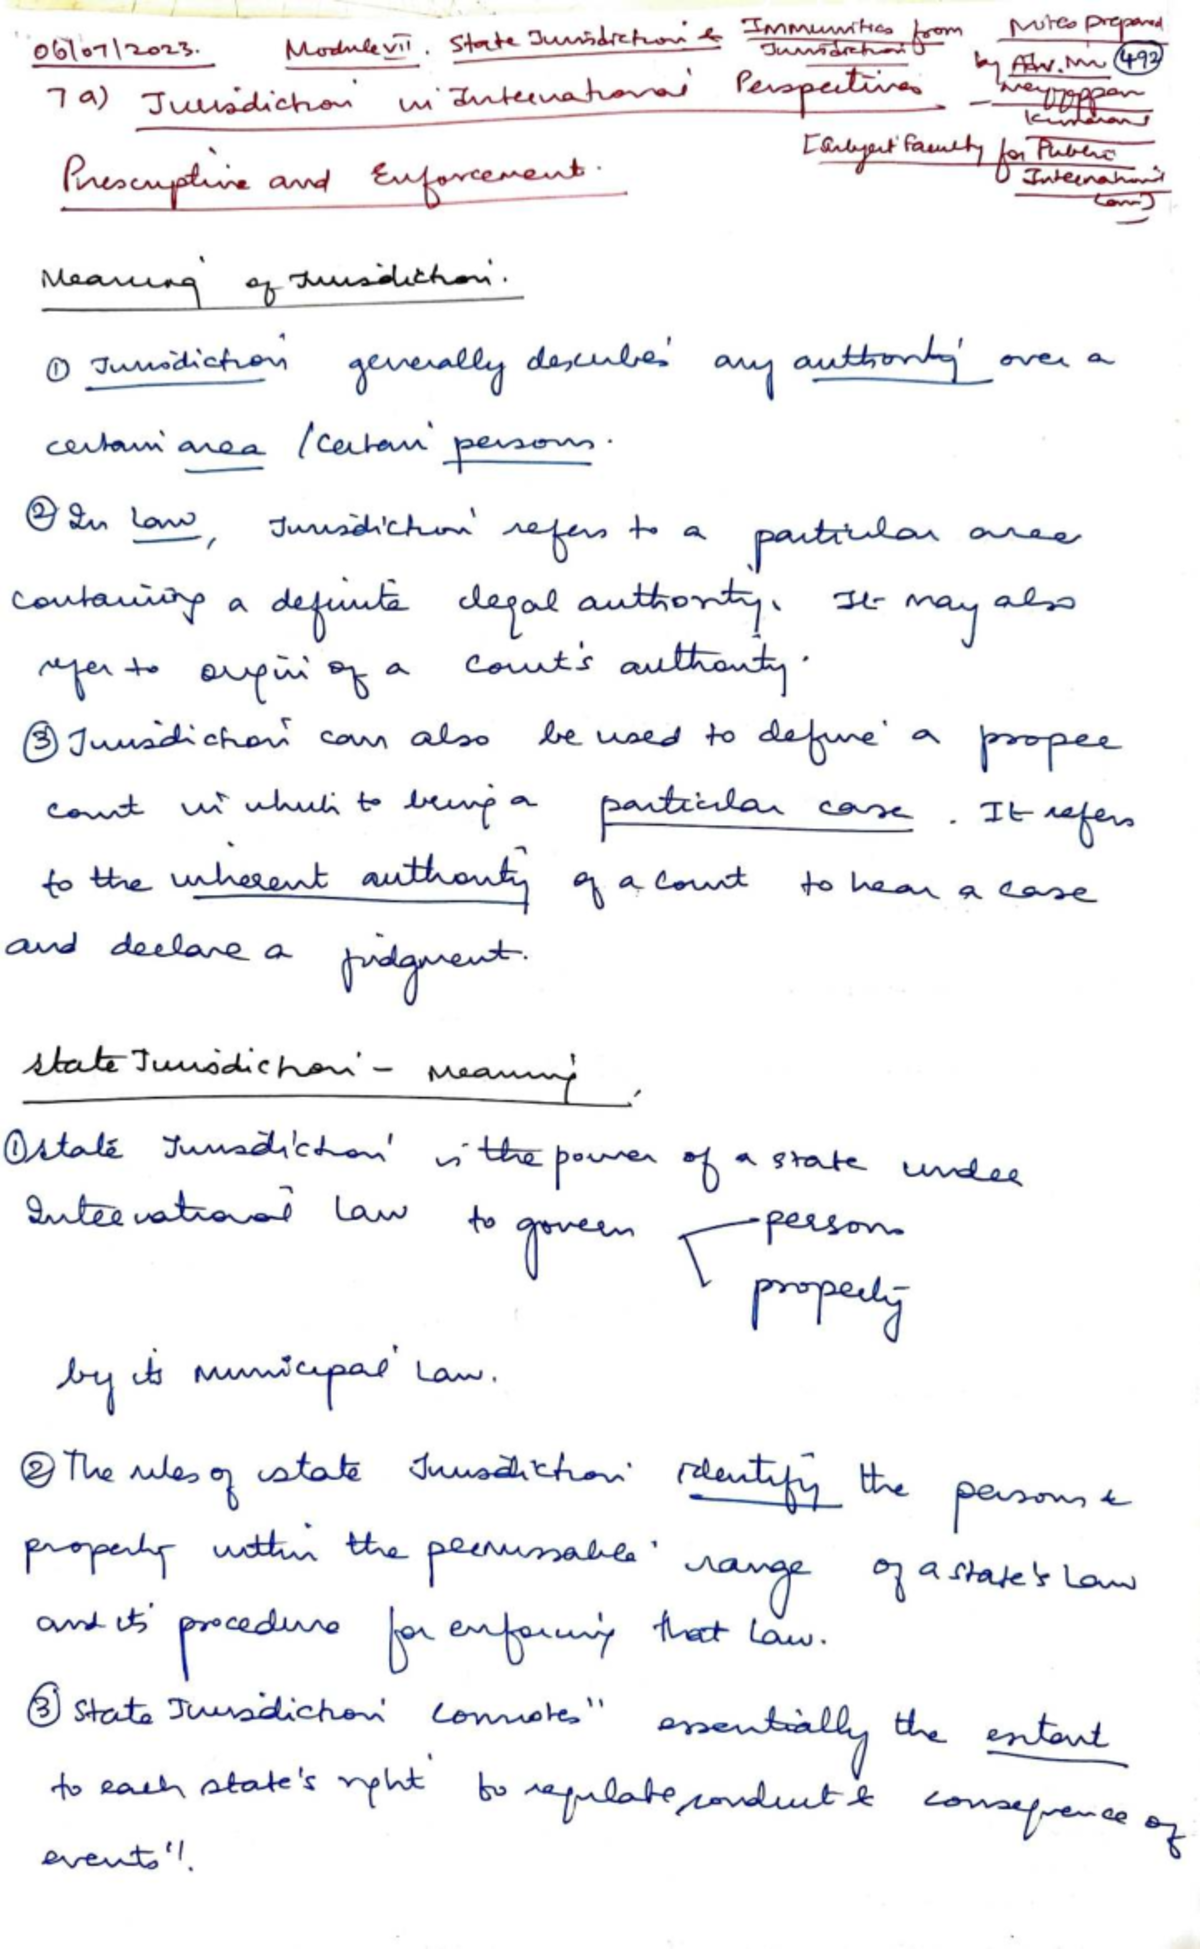 06/07/2023. Module VII. State Jurisdiction & Immunities from Jurisdiction
Notes prepared by Adv. Mr. Meyyappan Kumaran
492
[Subject Faculty for Public International Law]
7 a) Jurisdiction in International Perspectives
Prescriptive and Enforcement.
Meaning of Jurisdiction.
① Jurisdiction generally describes any authority over a
certain area / certain persons.
② In Law, Jurisdiction refers to a particular area
containing a definite legal authority. It may also
refer to origin of a court's authority.
③ Jurisdiction can also be used to define a proper
court in which to bring a particular case. It refers
to the inherent authority of a court to hear a case
and declare a judgment.
State Jurisdiction - Meaning.
① State Jurisdiction is the power of a state under
International Law to govern persons
property
by its municipal Law.
② The rules of state Jurisdiction identify the persons &
property within the permissable range of a state's Law
and its procedure for enforcing that Law.
③ State Jurisdiction connotes "essentially the extent
to each state's right to regulate conduct & consequence of
events".